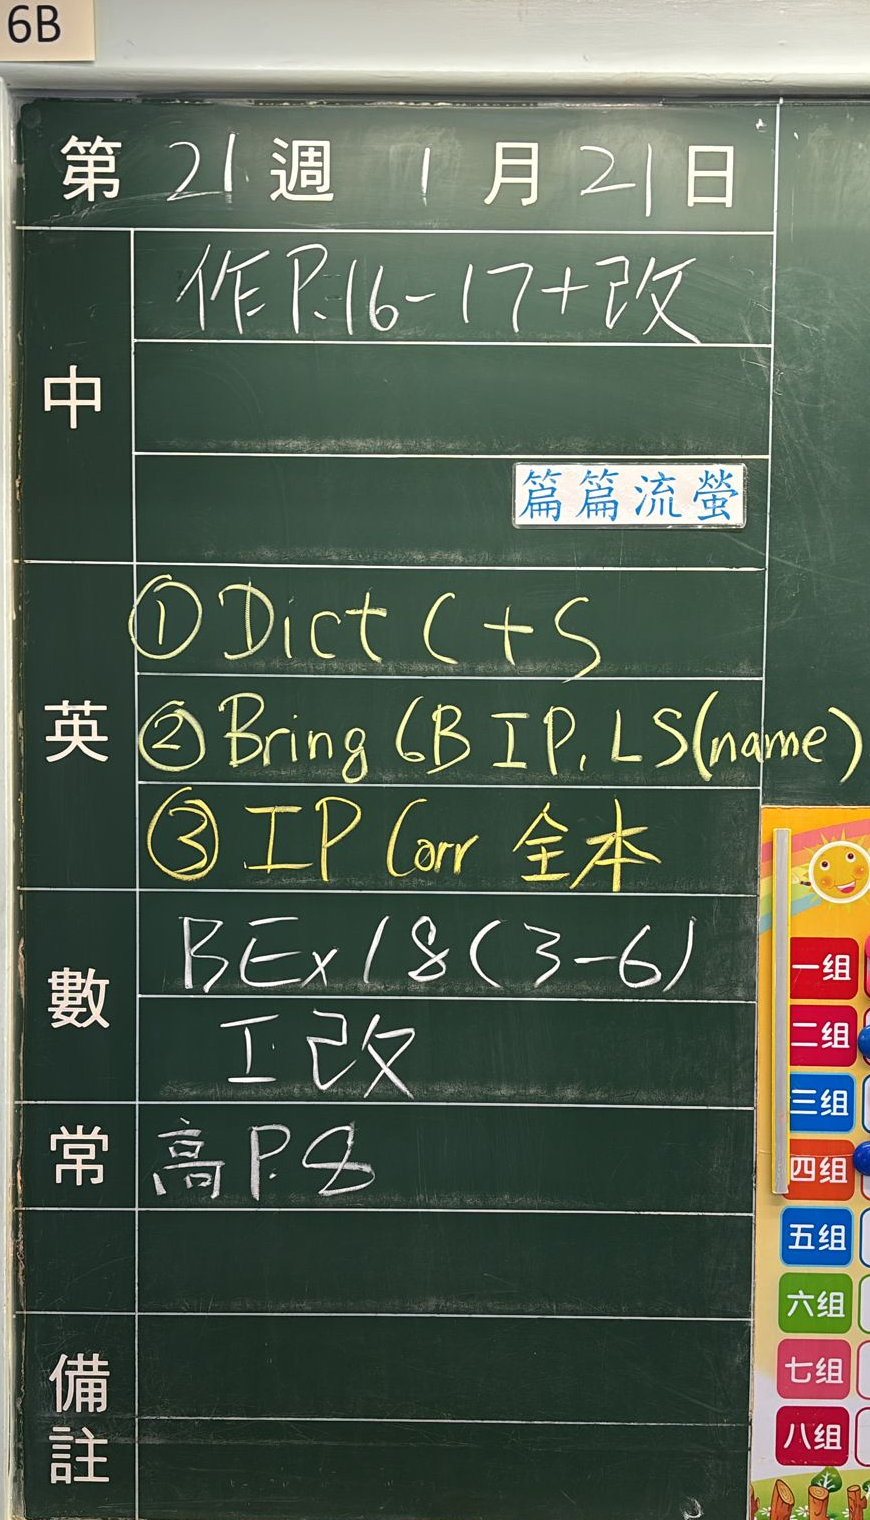 6B
第 21 週 1 月 21 日
中
作P.16-17+改
篇篇流螢
英
① Dict C + S
② Bring 6B IP, LS(name)
③ IP Corr 全本
數
BEx18(3-6)
I改
常
高P.8
備註
一组
二组
三组
四组
五组
六组
七组
八组